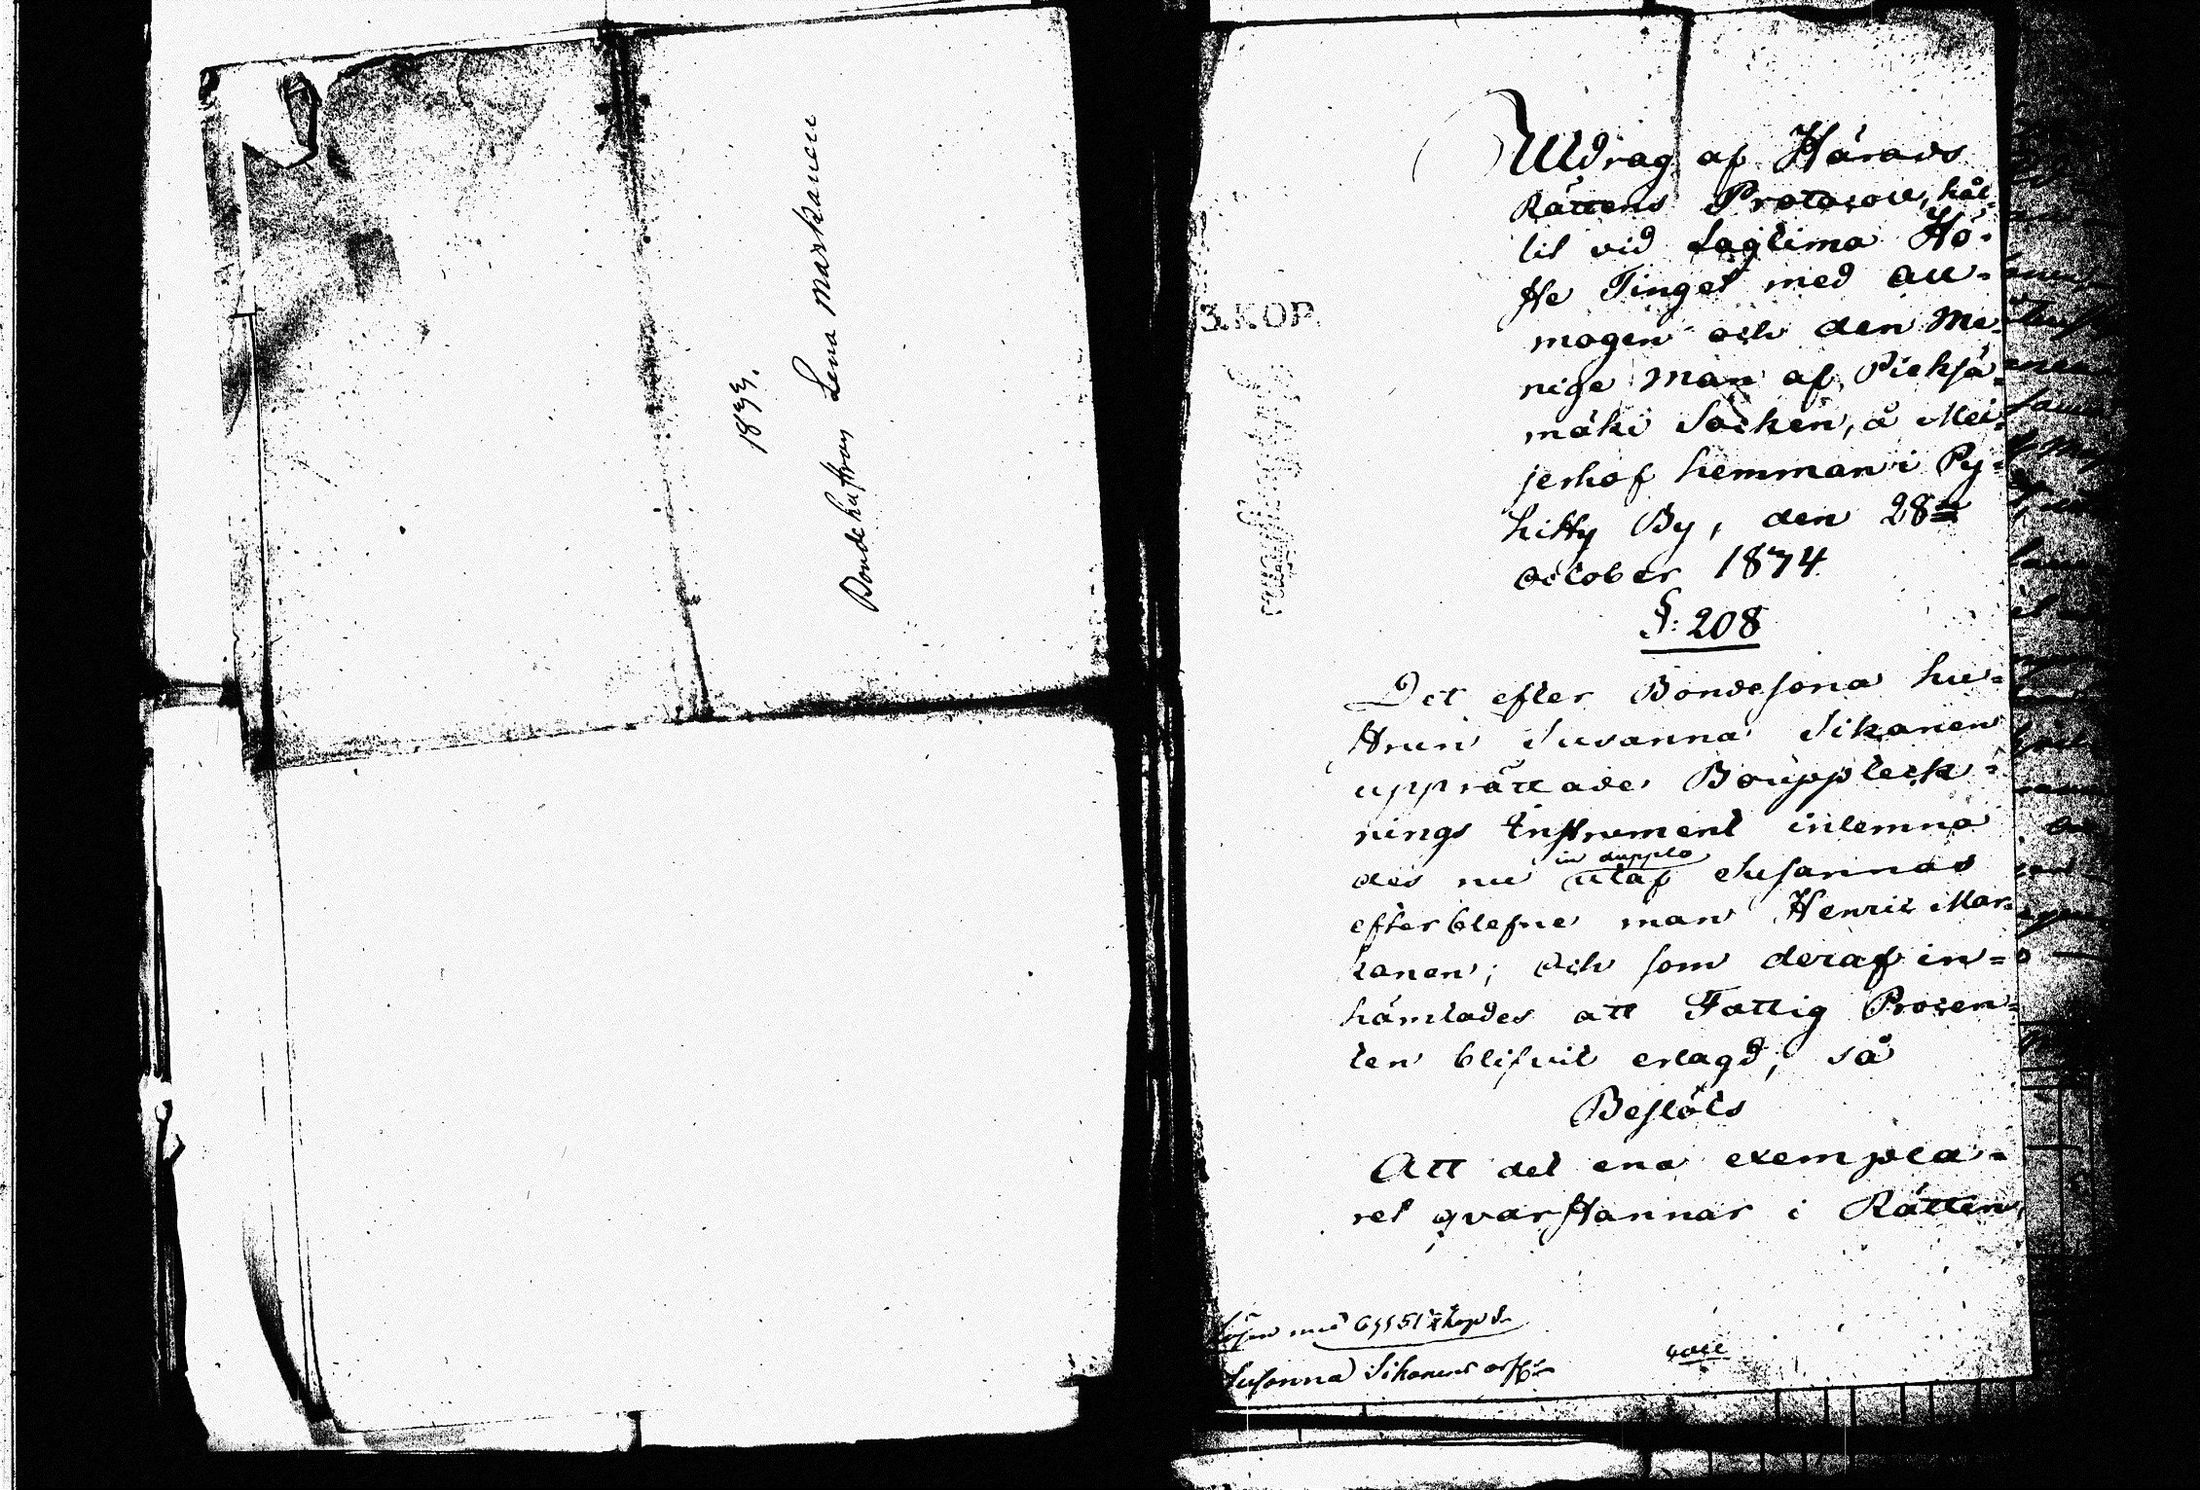 1833.
Bondehustrun Lena Markanen
3. KOP.
Utdrag af Härads
Rättens Protocoll, hål-
lit vid Lagtima Hö-
ste Tinget med all-
mogen och den Me-
nige Man af Pieksä-
mäki Socken, å Mei-
jerhof hemman i Py-
hitty By, den 28de
October 1834
§: 208
Det efter Bondesona hu-
strun Susanna Sikanen
upprättade Bouppteck-
nings Instrument inlemna
des nu in dupplo utaf Susannas
efterblefne man Henric Mar-
kanen; Och som deraf in-
hämtades att Fattig Procen-
ten blifvit erlagd, så
Beslöts
Att det ena exempla-
ret qvarstannar i Rätten,
Lösen med
Susanna Sikanens